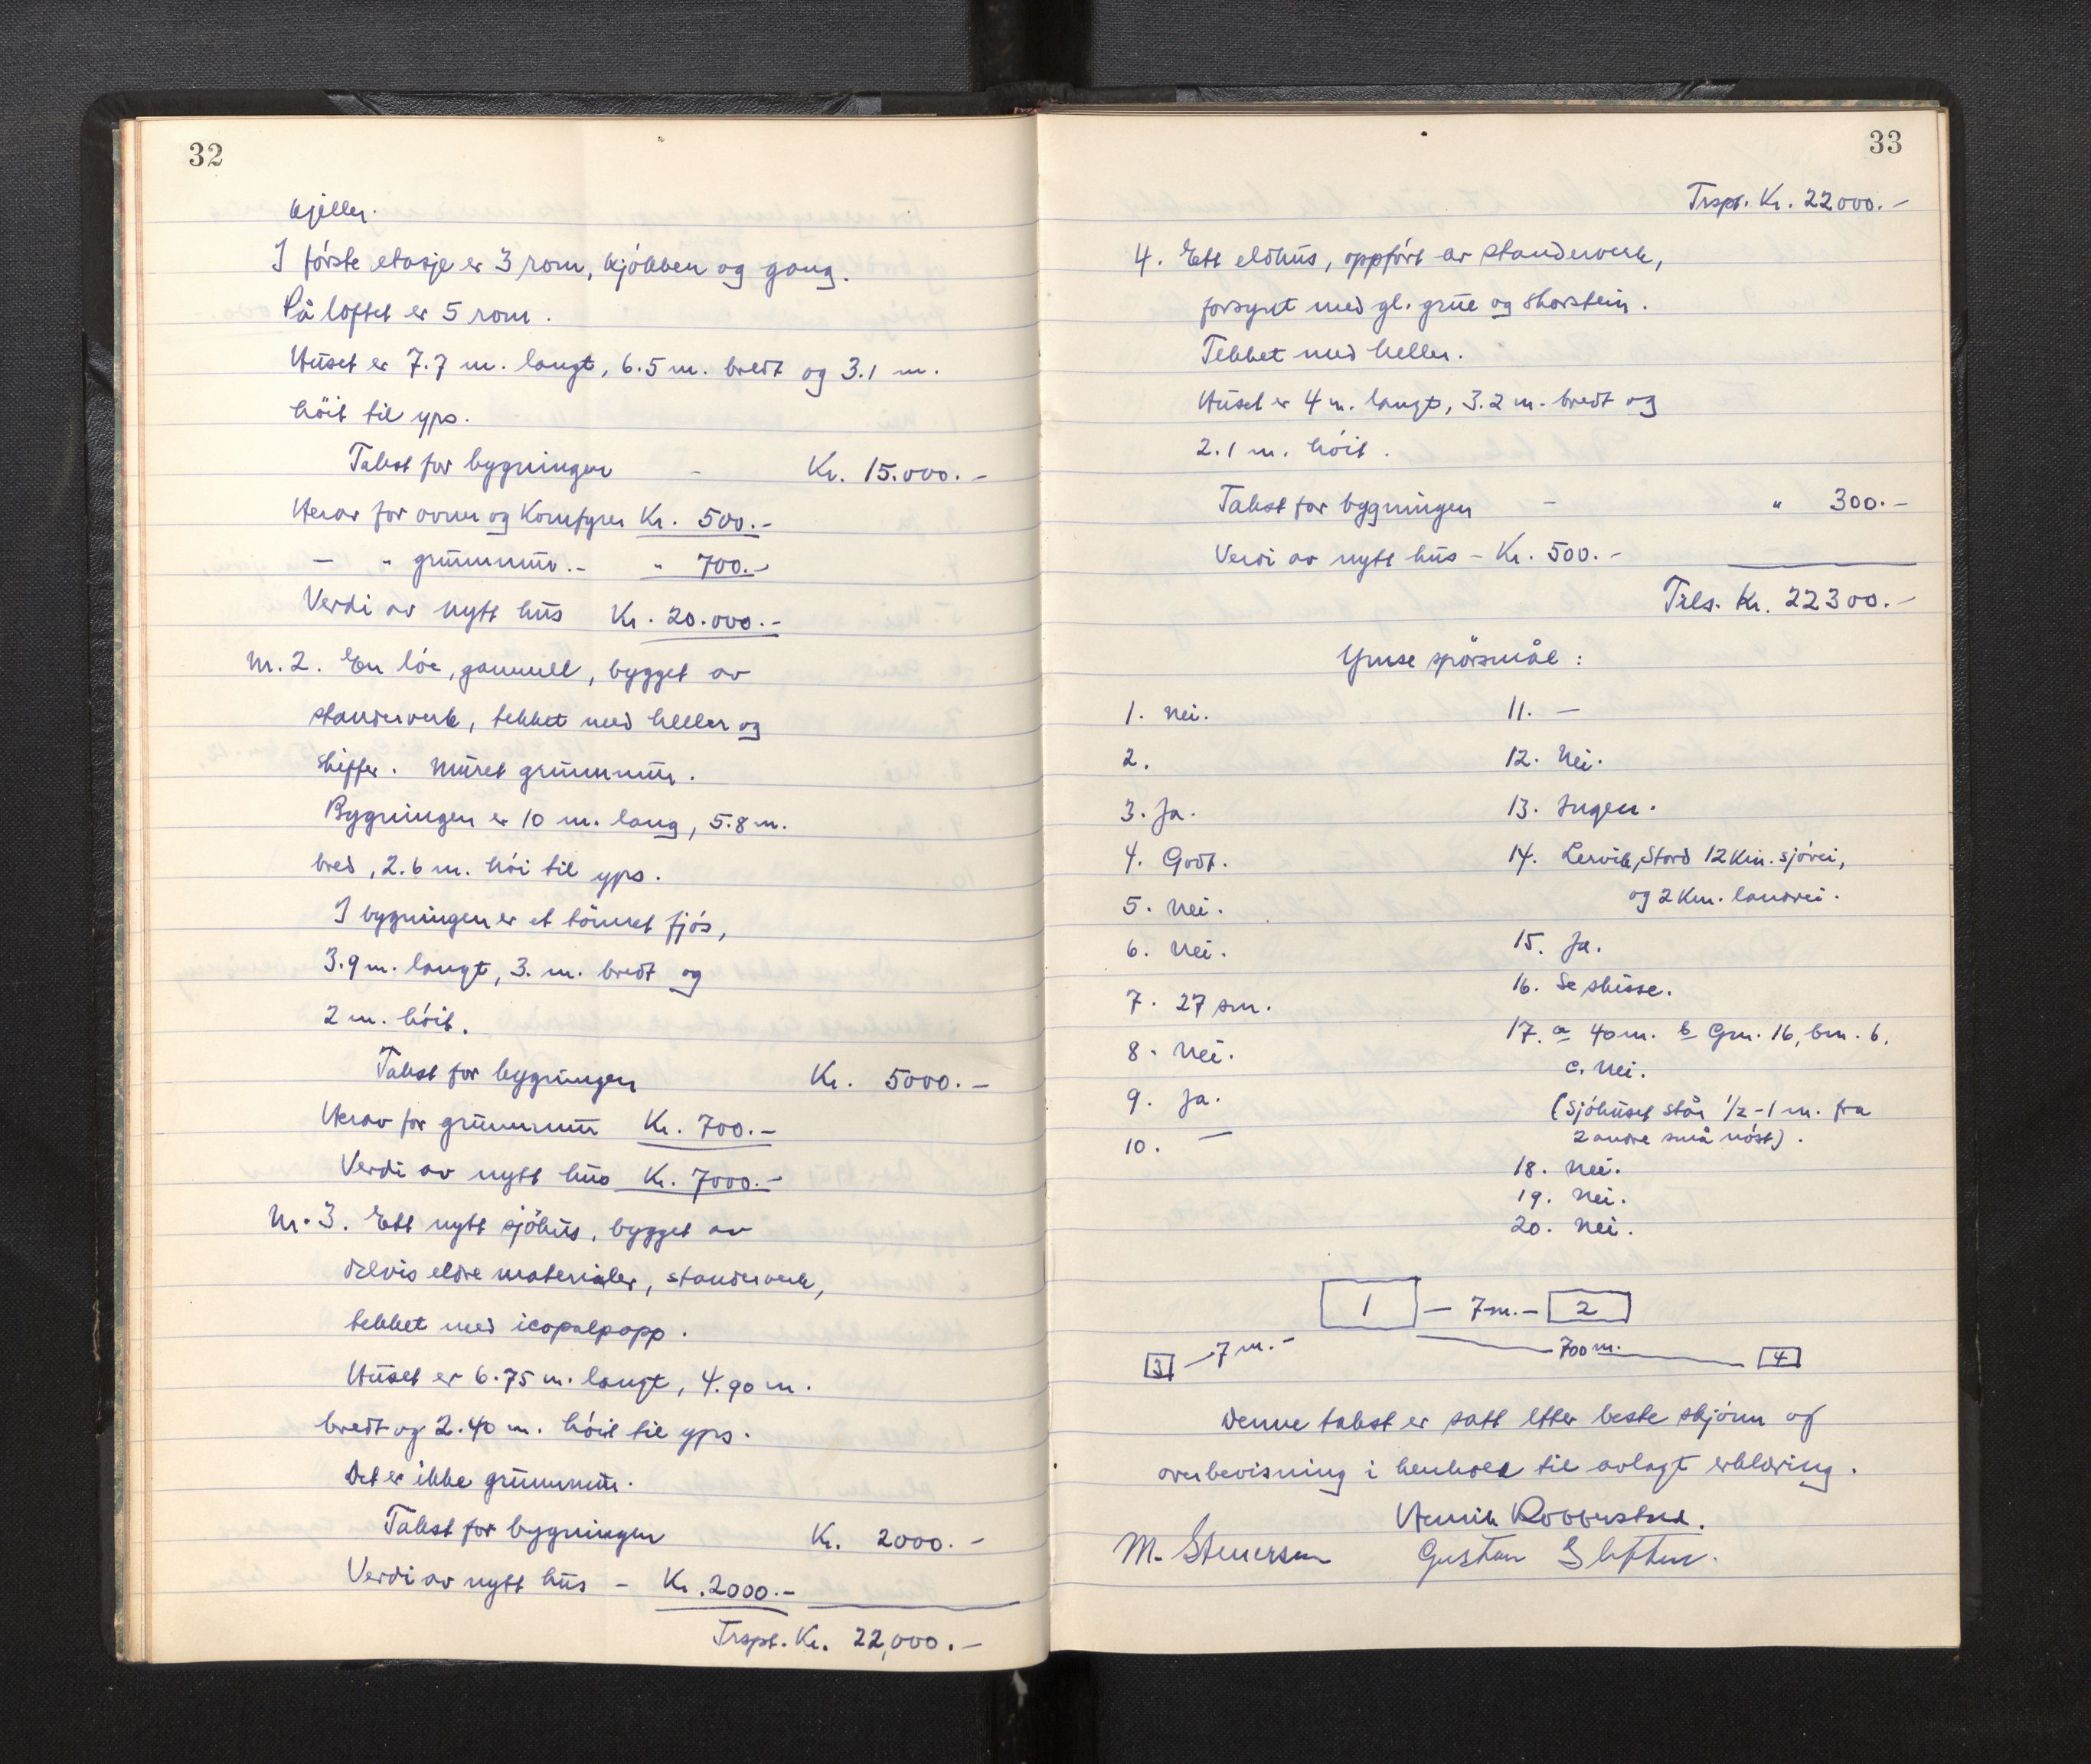 32
kjeller.
I förste etasje er 3 rom, kjökken og gang.
På loftet er 5 rom.
Huset er 7.7 m. langt, 6.5 m. bredt og 3.1 m.
höit til yps.
Takst for bygningen - Kr. 15.000.-
Herav for ovner og Komfyrer Kr. 500.-
— " grunnmur.- " 700.-
Verdi av nytt hus Kr. 20.000.-
Nr. 2. En löe, gammell, bygget av
standerverk, tekket med heller og
skiffer. Muret grunnmur.
Bygningen er 10 m. lang, 5.8 m.
bred, 2.6 m. höi til yps.
I bygningen er et tömret fjös,
3.9 m. langt, 3. m. bredt og
2 m. höit.
Takst for bygningen Kr. 5000.-
Herav for grunnmur Kr. 700.-
Verdi av nytt hus Kr. 7000.-
Nr. 3. Ett nytt sjöhus, bygget av
delvis eldre materialer, standerverk,
tekket med icopalpapp.
Huset er 6.75 m. langt, 4.90 m.
bredt og 2.40 m. höit til yps.
Det er ikke grunnmur.
Takst for bygningen Kr. 2000.-
Verdi av nytt hus - Kr. 2000.-
Trspt. Kr. 22,000.-
33
Trspt. Kr. 22000.-
4. Ett eldhus, oppfört av standerverk,
forsynt med gl. grue og skorstein.
Tekket med heller.
Huset er 4 m. langt, 3.2 m. bredt og
2.1 m. höit.
Takst for bygningen - " 300.-
Verdi av nytt hus - Kr. 500.-
Tils. Kr. 22300.-
Ymse spörsmål:
1. Nei.
2.
3. Ja.
4. Godt.
5. Nei.
6. Nei.
7. 27 sm.
8. Nei.
9. Ja.
10. —
11. —
12. Nei.
13. Ingen.
14. Lervik, Stord 12 Km. sjövei,
og 2 Km. landvei.
15. Ja.
16. Se skisse.
17. a 40 m. b Gm. 16, bm. 6.
c. Nei.
(Sjöhuset står 1/2 - 1 m. fra
2 andre små nöst).
18. Nei.
19. Nei.
20. Nei.
1 — 7 m. — 2
3 — 7 m. — 700 m. 4
Denne takst er satt etter beste skjönn og
overbevisning i henhold til avlagt erklæring.
Henrik Robberstad.
M. Steuersen Gustav